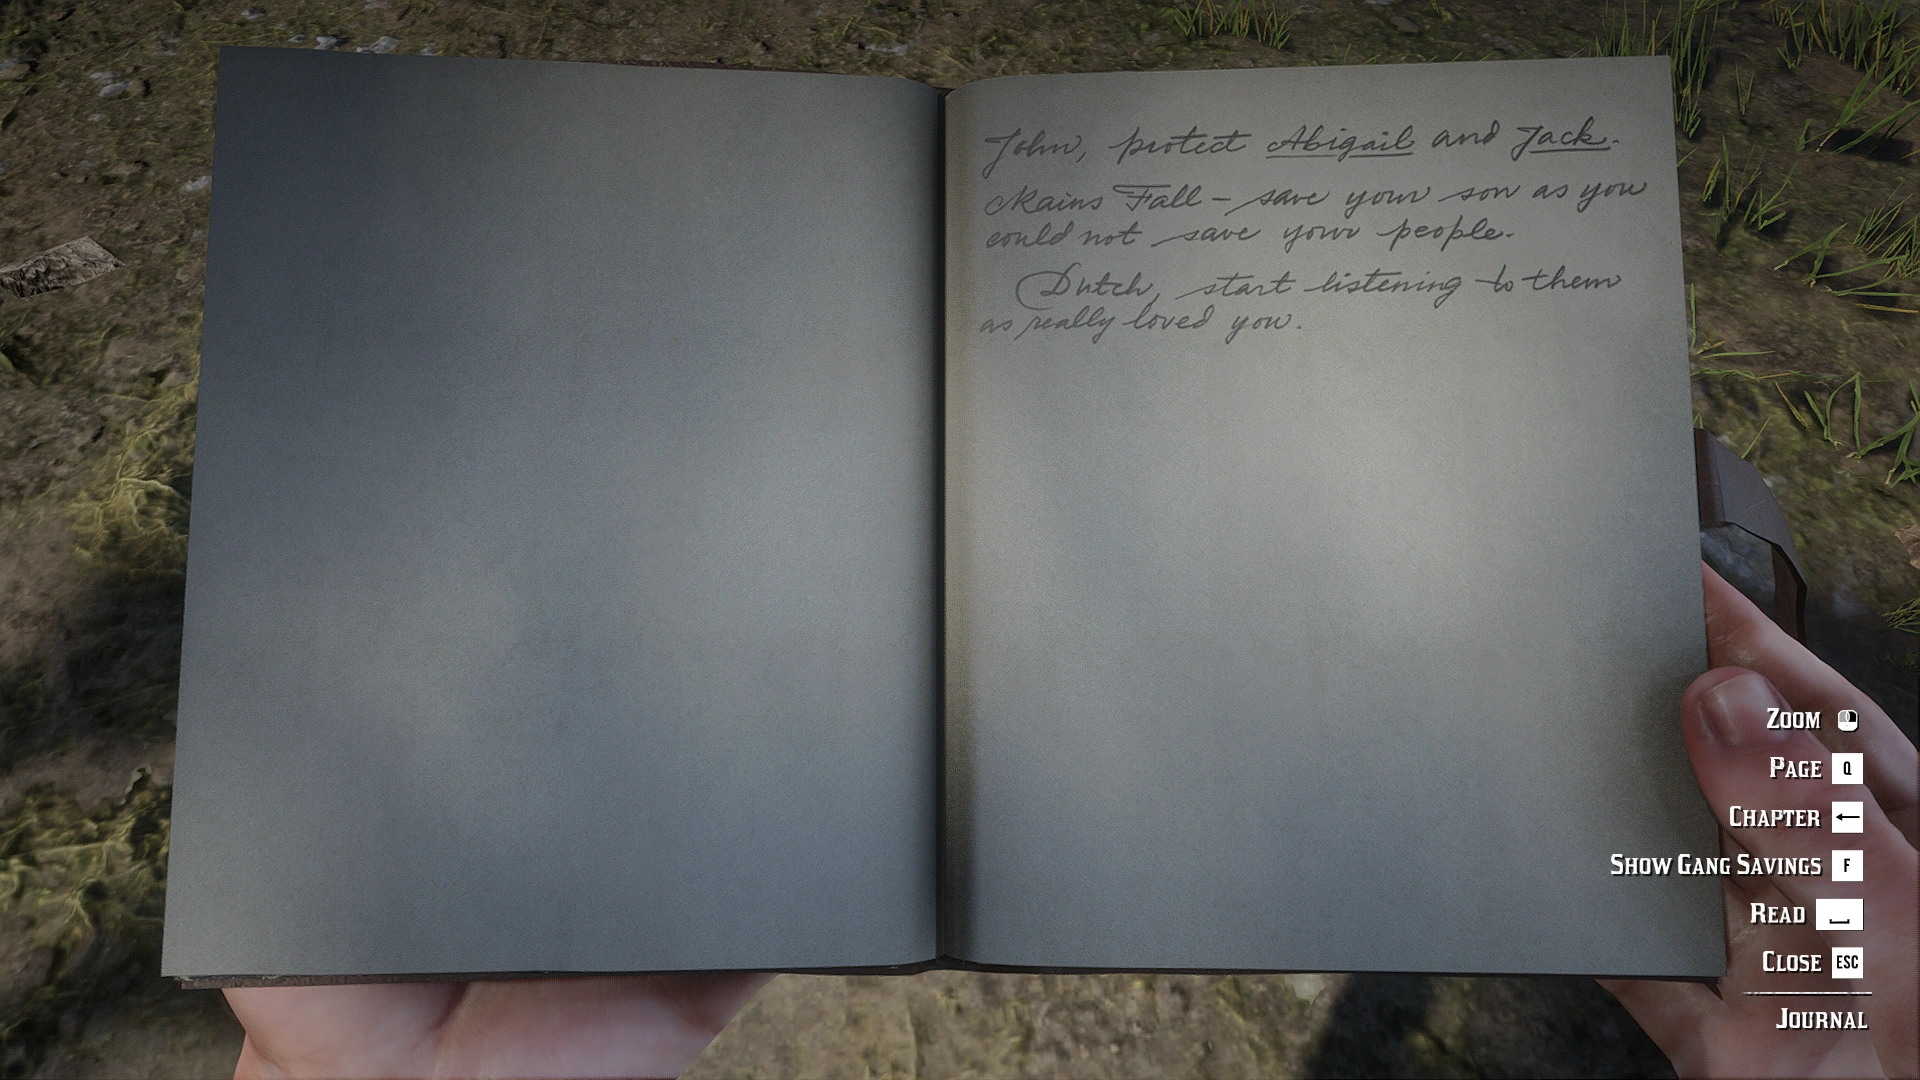 John, protect Abigail and Jack.
Rains Fall - save your son as you
could not save your people.
Dutch, start listening to them
as really loved you.
ZOOM
PAGE Q
CHAPTER ←
SHOW GANG SAVINGS F
READ
CLOSE ESC
JOURNAL